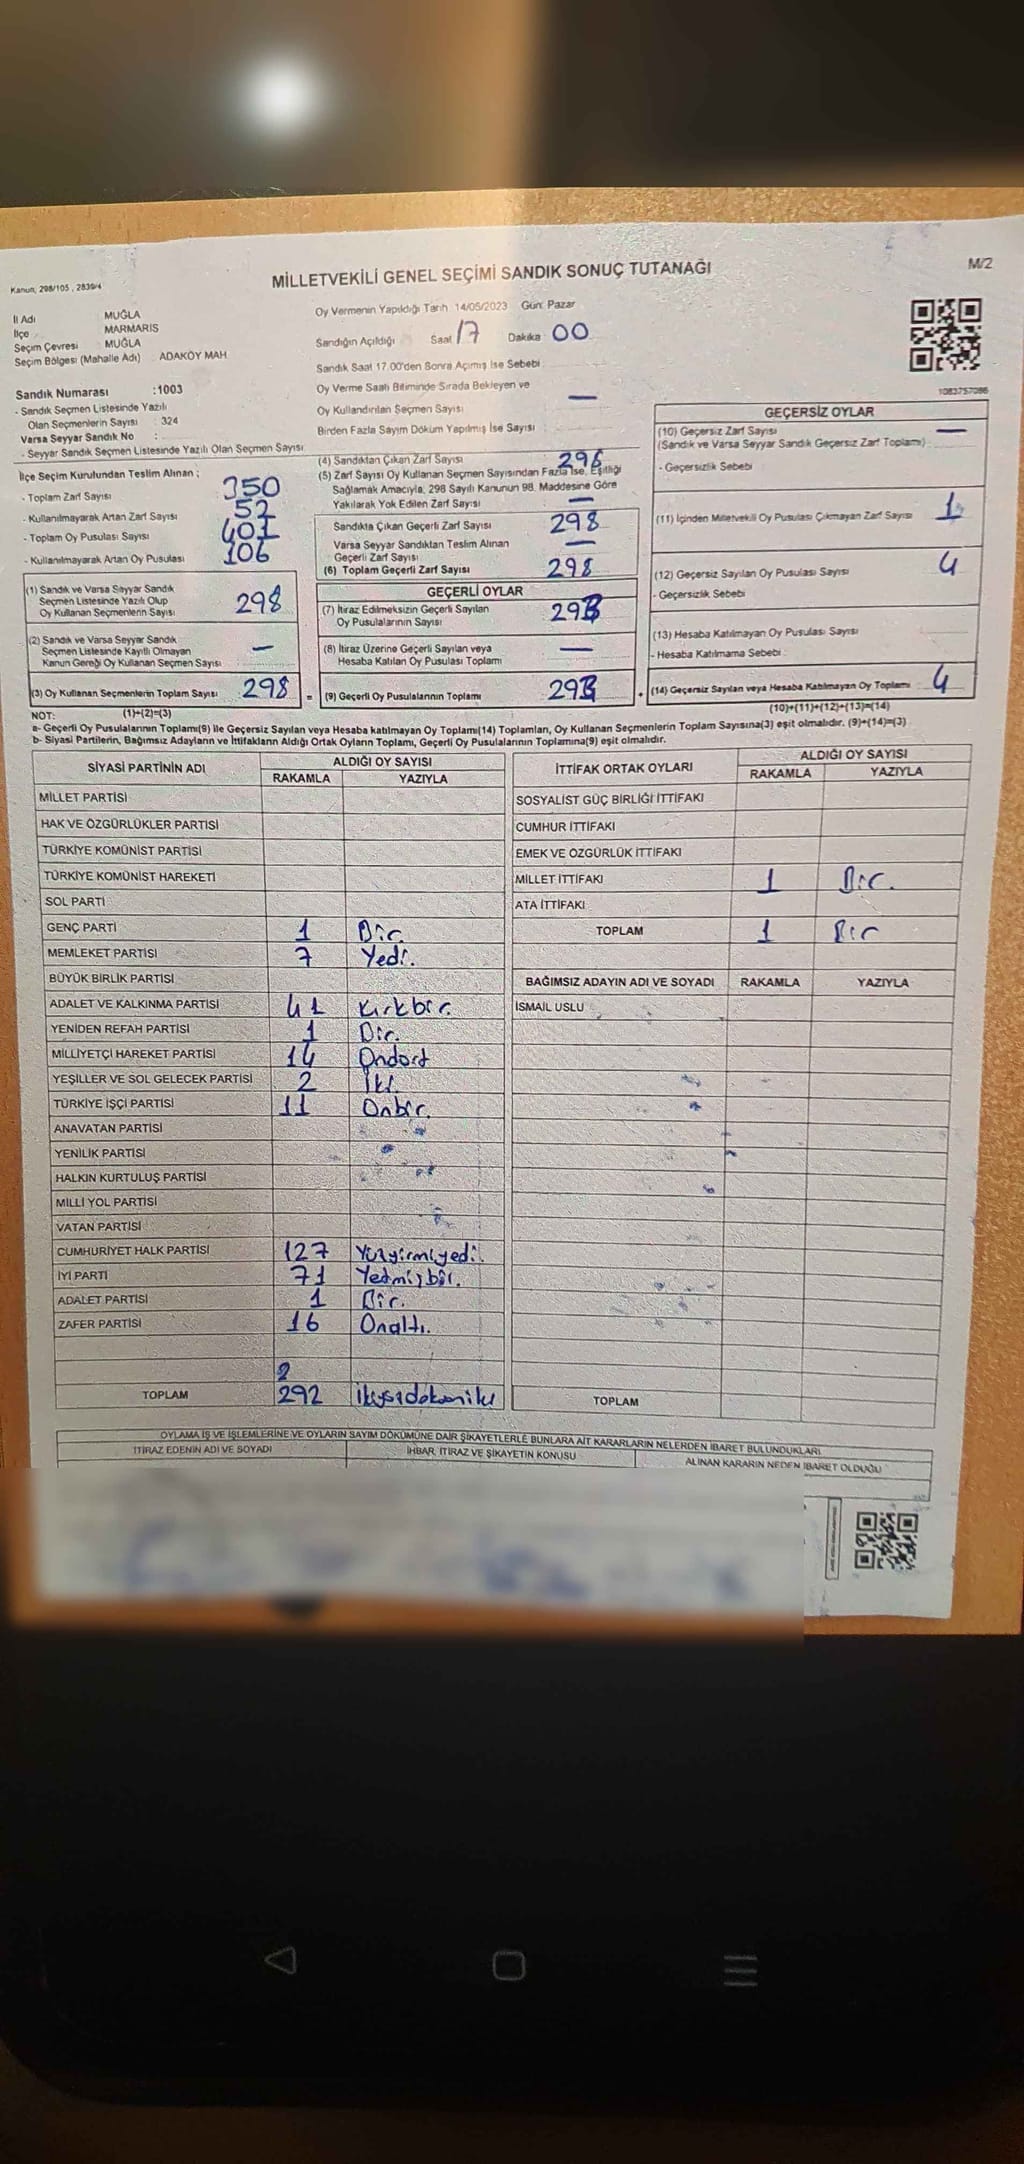 MİLLETVEKİLİ GENEL SEÇİMİ SANDIK SONUÇ TUTANAĞI
M/2
Kanun, 298/105 , 2839/4
İl Adı MUĞLA
İlçe MARMARİS
Seçim Çevresi MUĞLA
Seçim Bölgesi (Mahalle Adı) ADAKÖY MAH
Sandık Numarası :1003
- Sandık Seçmen Listesinde Yazılı
Olan Seçmenlerin Sayısı : 324
Varsa Seyyar Sandık No :
- Seyyar Sandık Seçmen Listesinde Yazılı Olan Seçmen Sayısı
Oy Vermenin Yapıldığı Tarih 14/05/2023 Gün: Pazar
Sandığın Açıldığı Saat 17 Dakika 00
Sandık Saat 17.00'den Sonra Açımış İse Sebebi
Oy Verme Saati Bitiminde Sırada Bekleyen ve
Oy Kullandırılan Seçmen Sayısı —
Birden Fazla Sayım Döküm Yapılmış İse Sayısı
1083757086
İlçe Seçim Kurulundan Teslim Alınan ;
- Toplam Zarf Sayısı 350
- Kullanılmayarak Artan Zarf Sayısı 52
- Toplam Oy Pusulası Sayısı 401
- Kullanılmayarak Artan Oy Pusulası 106
(1) Sandık ve Varsa Seyyar Sandık
Seçmen Listesinde Yazılı Olup
Oy Kullanan Seçmenlerin Sayısı 298
(2) Sandık ve Varsa Seyyar Sandık
Seçmen Listesinde Kayıtlı Olmayan
Kanun Gereği Oy Kullanan Seçmen Sayısı —
(3) Oy Kullanan Seçmenlerin Toplam Sayısı 298
(1)+(2)=(3)
(4) Sandıktan Çıkan Zarf Sayısı
(5) Zarf Sayısı Oy Kullanan Seçmen Sayısından Fazla İse, Eşitliği
Sağlamak Amacıyla, 298 Sayılı Kanunun 98. Maddesine Göre
Yakılarak Yok Edilen Zarf Sayısı —
Sandıkta Çıkan Geçerli Zarf Sayısı 298
Varsa Seyyar Sandıktan Teslim Alınan
Geçerli Zarf Sayısı —
(6) Toplam Geçerli Zarf Sayısı 298
GEÇERLİ OYLAR
(7) İtiraz Edilmeksizin Geçerli Sayılan
Oy Pusulalarının Sayısı
(8) İtiraz Üzerine Geçerli Sayılan veya
Hesaba Katılan Oy Pusulası Toplamı —
= (9) Geçerli Oy Pusulalarının Toplamı
GEÇERSİZ OYLAR
(10) Geçersiz Zarf Sayısı —
(Sandık ve Varsa Seyyar Sandık Geçersiz Zarf Toplamı)
- Geçersizlik Sebebi
(11) İçinden Milletvekili Oy Pusulası Çıkmayan Zarf Sayısı 1
(12) Geçersiz Sayılan Oy Pusulası Sayısı 4
- Geçersizlik Sebebi
(13) Hesaba Katılmayan Oy Pusulası Sayısı
- Hesaba Katılmama Sebebi :
+ (14) Geçersiz Sayılan veya Hesaba Katılmayan Oy Toplamı 4
(10)+(11)+(12)+(13)=(14)
NOT:
a- Geçerli Oy Pusulalarının Toplamı(9) ile Geçersiz Sayılan veya Hesaba katılmayan Oy Toplamı(14) Toplamları, Oy Kullanan Seçmenlerin Toplam Sayısına(3) eşit olmalıdır. (9)+(14)=(3)
b- Siyasi Partilerin, Bağımsız Adayların ve İttifakların Aldığı Ortak Oyların Toplamı, Geçerli Oy Pusulalarının Toplamına(9) eşit olmalıdır.
SİYASİ PARTİNİN ADI ALDIĞI OY SAYISI
RAKAMLA YAZIYLA
MİLLET PARTİSİ
HAK VE ÖZGÜRLÜKLER PARTİSİ
TÜRKİYE KOMÜNİST PARTİSİ
TÜRKİYE KOMÜNİST HAREKETİ
SOL PARTİ
GENÇ PARTİ 1 Bir.
MEMLEKET PARTİSİ 7 Yedi.
BÜYÜK BİRLİK PARTİSİ
ADALET VE KALKINMA PARTİSİ 41 Kırkbir.
YENİDEN REFAH PARTİSİ 1 Bir.
MİLLİYETÇİ HAREKET PARTİSİ 14 Ondört
YEŞİLLER VE SOL GELECEK PARTİSİ 2 İki.
TÜRKİYE İŞÇİ PARTİSİ 11 Onbir.
ANAVATAN PARTİSİ
YENİLİK PARTİSİ
HALKIN KURTULUŞ PARTİSİ
MİLLİ YOL PARTİSİ
VATAN PARTİSİ
CUMHURİYET HALK PARTİSİ 127 Yüzyirmiyedi.
İYİ PARTİ 71 Yetmişbir.
ADALET PARTİSİ 1 Bir.
ZAFER PARTİSİ 16 Onaltı.
2
TOPLAM 292
İTTİFAK ORTAK OYLARI ALDIĞI OY SAYISI
RAKAMLA YAZIYLA
SOSYALİST GÜÇ BİRLİĞİ İTTİFAKI
CUMHUR İTTİFAKI
EMEK VE ÖZGÜRLÜK İTTİFAKI
MİLLET İTTİFAKI 1 Bir.
ATA İTTİFAKI
TOPLAM 1 Bir
BAĞIMSIZ ADAYIN ADI VE SOYADI RAKAMLA YAZIYLA
İSMAİL USLU
TOPLAM
OYLAMA İŞ VE İŞLEMLERİNE VE OYLARIN SAYIM DÖKÜMÜNE DAİR ŞİKAYETLERLE BUNLARA AİT KARARLARIN NELERDEN İBARET BULUNDUKLARI
İTİRAZ EDENİN ADI VE SOYADI İHBAR, İTİRAZ VE ŞİKAYETİN KONUSU ALINAN KARARIN NEDEN İBARET OLDUĞU